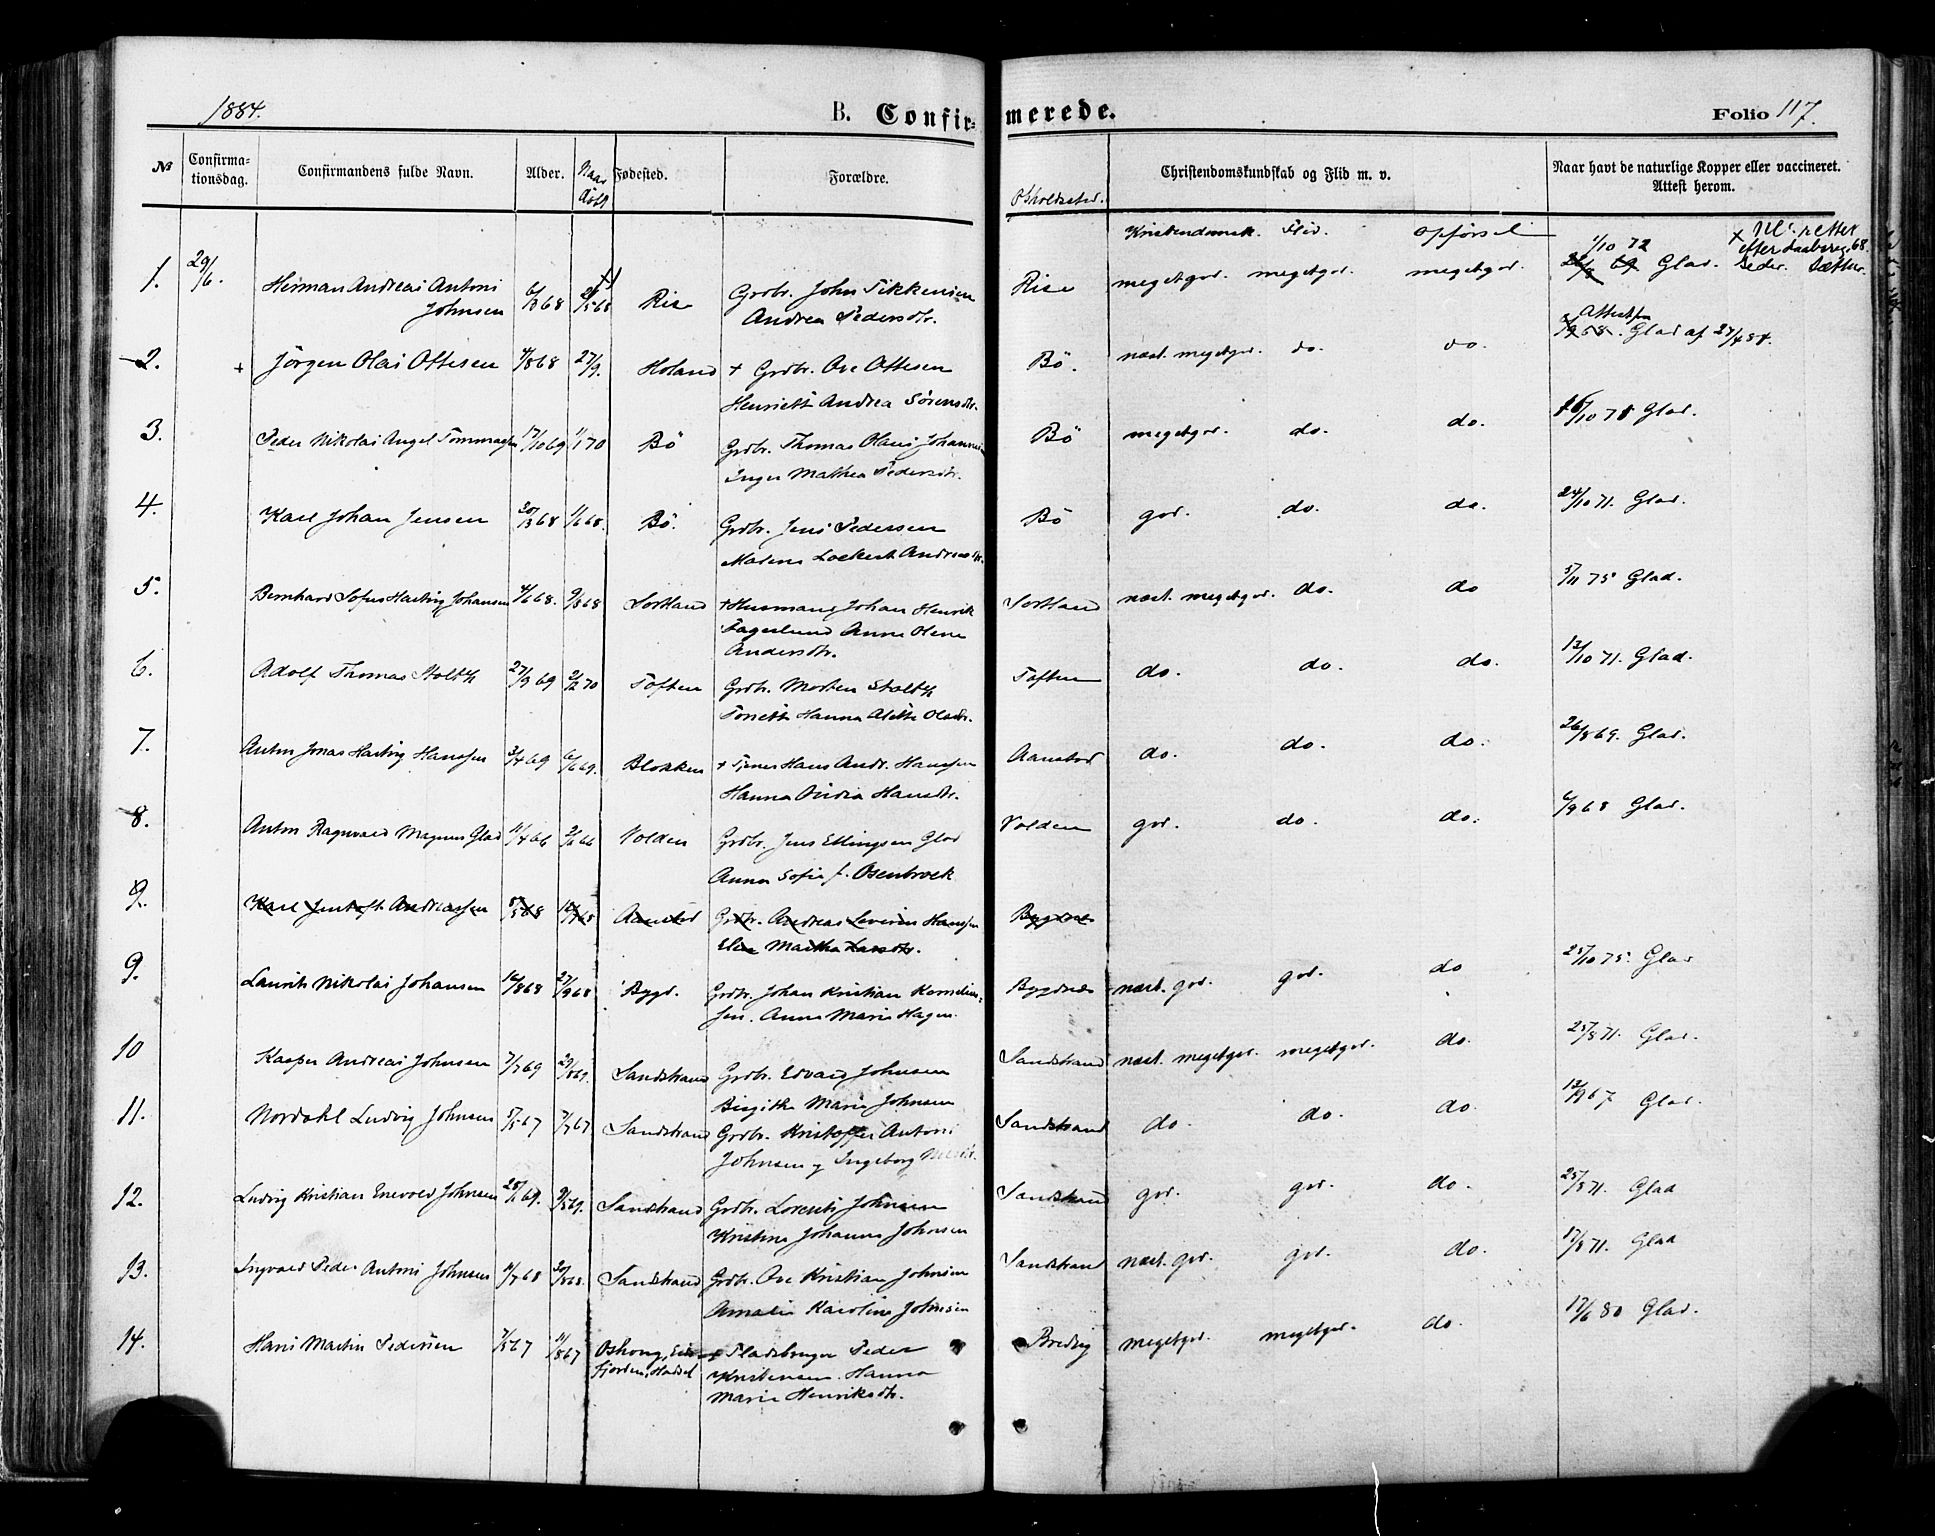 1884. B. Confirmerede. Folio 117.
№ Confirmationsdag. Confirmandens fulde Navn. Alder. Naar döbt Fødested. Forældre. Opholdssted. Christendomskundskab og Flid m. v. Naar havt de naturlige Kopper eller vaccineret. Attest herom.
Kristendomsk. Flid. Opförsel
1. 29/6. Herman Andreas Antoni Johnsen Rise Grdbr. John Sikkensen Andrea Pedersdtr. Rise megetgod. megetgod. megetgod. 1/10 72 Glad.
2. + Jörgen Olai Ottesen 27/9. Holand + Grdbr. Ove Ottesen Henriette Andrea Sörensdtr. Bö. næst. megetgod. do. do. Glad af 27/4 84.
3. Peder Nikolai Angel Tommassen 17/10 69 1/1 70 Bö Grdbr. Thomas Olaus Johannesen Inger Mathea Pedersdtr. Bö megetgod. do. do. Glad.
4. Karl Johan Jensen 20/3 68 1/6 68. Bö. Grdbr. Jens Pedersen Andreasdtr. Bö god. do. do. 24/10 71. Glad.
5. Bernhard Sofus Hartvig Johansen 4/6 68. 9/8 68 Sortland + Husmand Johan Henrik Fagerlund Anne Olene Andersdtr. Sortland næst. megetgod. do. do 5/11 75 Glad.
6. Adolf Thomas Stolth 27/9 69 2/2 70 Toften Grdbr. Morten Stolth Hanna Alette Olsdtr. Toften do. do. do. 13/10 71. Glad.
7. Anton Jonas Hartvig Hanssen 3/4 69 6/6 69. Blokken + Tjener Hans Andr. Hanssen Hanna Hansdtr. Aanstad do. do. do. 26/8 69. Glad.
8. Anton Ragnvald Magnus Glad 11/4 66 Volden Grdbr. Jens Ellingsen Glad Anna Sofie f. Osenbroch Volden god. do. do. 6/9 68 Glad.
9. Karl Jentoft Andreassen Aanstad Grdbr. Andreas Severin Hanssen Martha Larsdtr. Bygdnes
9. Laurits Nikolai Johansen 16/8 68 27/9 68 Bygd. Grdbr. Johan Kristian Korneliussen. Anne Marie Hagen. Bygdnes næst. god. god. do 25/10 75. Glad
10 Kasper Andreas Johnsen 7/7 69 29/8 69. Sandstrand Grdbr. Edvard Johnsen Birgitha Marie Johnsen Sandstrand næst. megetgod. megetgod. do. 25/8 71. Glad.
11. Nordahl Ludvig Johnsen 5/5 67 7/7 67 Sandstrand Grdbr. Kristoffer Antoni Johnsen og Ingeborg Sandstrand do. do. do. 13/9 67 Glad.
12. Ludvig Kristian Enevold Johnsen Sandstrand Grdbr. Lorents Johnsen Kristine Johanna Johnsen Sandstrand god. god. do. 25/8 71. Glad
13. Ingvald Peder Antoni Johnsen 11/7 68 30/8 68. Sandstrand Grdbr. Ove Kristian Johnsen Amalie Karoline Johnsen Sandstrand næst. god. god. do. 17/8 71. Glad
14. Hans Martin Pedersen 11/8 67 Fjorden, Hadsel + Pladsbruger Peder Kristensen. Hanna Marie Henriksdtr. Bredvig megetgod. megetgod. do. 17/6 80 Glad.